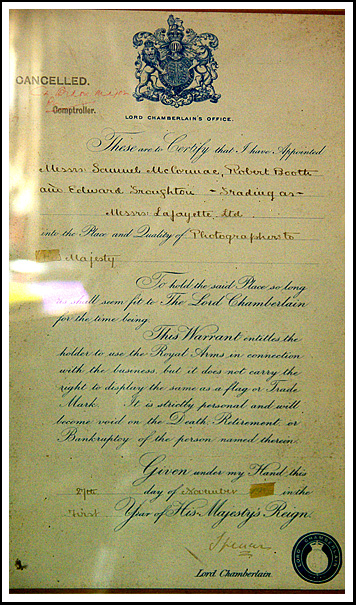 CANCELLED.
Comptroller.
LORD CHAMBERLAIN'S OFFICE.
These are to Certify that I have Appointed
Messrs Samuel McCormac, Robert Booth
and Edward Troughton - Trading as -
Messrs Lafayette, Ltd.
into the Place and Quality of Photographers to
Majesty
To hold the said Place so long
as shall seem fit to The Lord Chamberlain
for the time being.
This Warrant entitles the
holder to use the Royal Arms in connection
with the business, but it does not carry the
right to display the same as a flag or Trade
Mark. It is strictly personal and will
become void on the Death, Retirement, or
Bankruptcy of the person named therein.
Given under my Hand this
27th day of November in the
First Year of His Majesty's Reign.
Spencer
Lord Chamberlain.
LORD CHAMBERLAIN